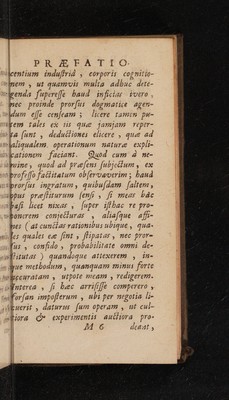 PRÆFATIO.
centium industriâ, corporis cognitio-
nem, ut quamvis multa adhuc dete-
genda superesse haud inficias ivero,
nec proinde prorsus dogmatice agen-
dum esse censeam; licere tamen pu-
tem tales ex iis quæ jamjam reper-
ta sunt, deductiones elicere, quæ ad
aliqualem operationum naturæ expli-
cationem faciant. Quod cum à ne-
mine, quod ad præsens subjectum, ex
professo factitatum observaverim; haud
prorsus ingratum, quibusdam saltem,
opus præstiturum sensi, si meas hâc
quasi licet nixas, super isthac re pro-
ponerem conjecturas, aliasque affi-
nes (at cunctas rationibus ubique, qua-
les quales eæ sint, stipatas, nec pror-
sus, confido, probabilitate omni de-
stitutas) quandoque attexerem, in-
que methodum, quanquam minus forte
accuratam, utpote meam, redigerem.
Interea, si hæc arrisisse comperero,
forsan imposterum, ubi per negotia li-
cuerit, daturus sum operam, ut cul-
tiora & experimentis auctiora pro-
M 6 deant,